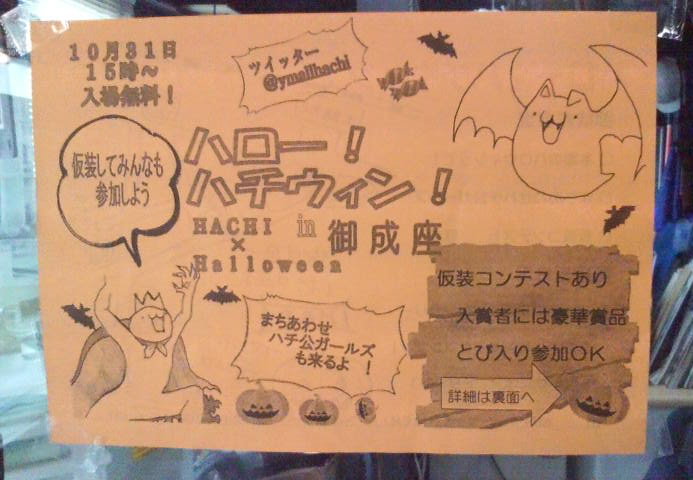 10月31日
15時～
入場無料！
ツイッター
@ymallhachi
仮装してみんなも
参加しよう
ハロー！
ハチウィン！
HACHI in 御成座
×
Halloween
仮装コンテストあり
入賞者には豪華賞品
とび入り参加OK
詳細は裏面へ
まちあわせ
ハチ公ガールズ
も来るよ！